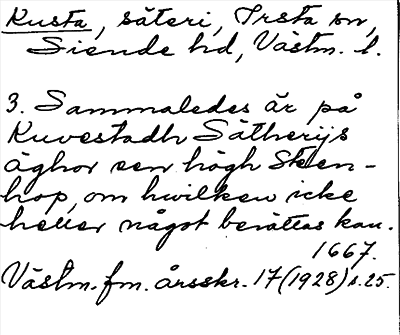 Kusta, säteri, Irsta sn,
Siende hd, Västm. l.
3. Sammaledes är på
Kuvestadh Sätherijs
äghor een högh Steen-
hop, om hwilken icke
heller något berättas kan.
1667.
Västm. fm. årsskr. 17 (1928) s. 25.